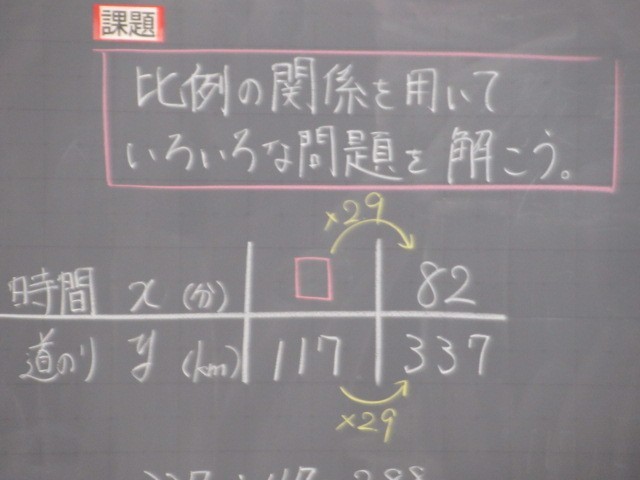 課題
比例の関係を用いて
いろいろな問題を解こう。
×29
時間 x (分) □ 82
道のり y (km) 117 337
×29